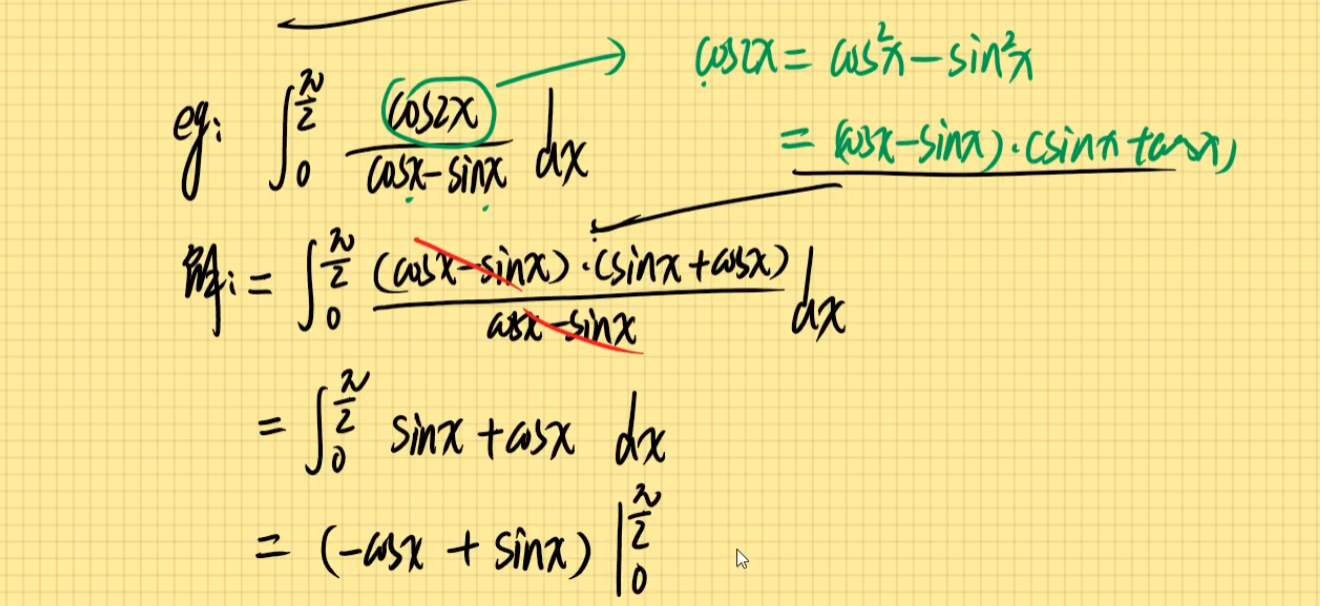 cos2x = cos²x − sin²x
eg: ∫₀^(π/2) cos2x / (cosx − sinx) dx
= (cosx − sinx)·(sinx + cosx)
解: = ∫₀^(π/2) (cosx − sinx)·(sinx + cosx) / (cosx − sinx) dx
= ∫₀^(π/2) sinx + cosx dx
= (−cosx + sinx) |₀^(π/2)